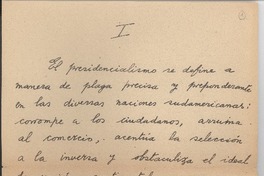 I
El presidencialismo se define a
manera de plaga precisa y preponderante
en las diversas naciones sudamericanas:
corrompe a los ciudadanos, arruina
al comercio, acentúa la selección
a la inversa y obstaculiza el ideal